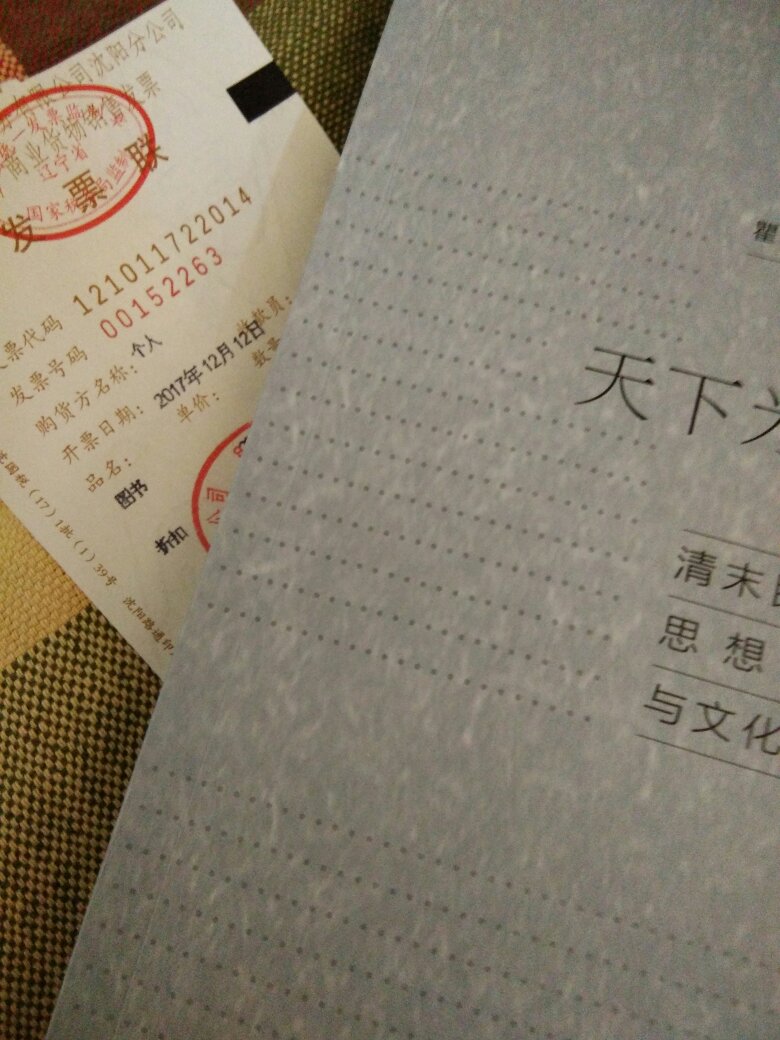 有限公司沈阳分公司
商业货物销售发票
辽宁省
发票联
国家税
局监制
发票代码 121011722014
发票号码 00152263
购货方名称: 个人
开票日期: 2017年12月12日
收款员:
品名:
单价:
数量
图书
折扣
公司
国税 (17) 1批 (1) 39号 沈阳路通印
瞿
天下为
清末
思想
与文化